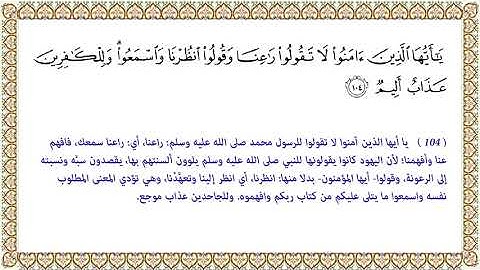 يَـٰٓأَيُّهَا ٱلَّذِينَ ءَامَنُوا۟ لَا تَقُولُوا۟ رَٰعِنَا وَقُولُوا۟ ٱنظُرْنَا وَٱسْمَعُوا۟ ۗ وَلِلْكَـٰفِرِينَ
عَذَابٌ أَلِيمٌ ١٠٤
( 104 ) يا أيها الذين آمنوا لا تقولوا للرسول محمد صلى الله عليه وسلم: راعنا، أي: راعنا سمعك، فافهم
عنا وأفهمنا؛ لأن اليهود كانوا يقولونها للنبي صلى الله عليه وسلم يلوون ألسنتهم بها، يقصدون سبَّه ونسبته
إلى الرعونة، وقولوا- أيها المؤمنون- بدلا منها: انظرنا، أي انظر إلينا وتعهَّدْنا، وهي تؤدي المعنى المطلوب
نفسه واسمعوا ما يتلى عليكم من كتاب ربكم وافهموه. وللجاحدين عذاب موجع.